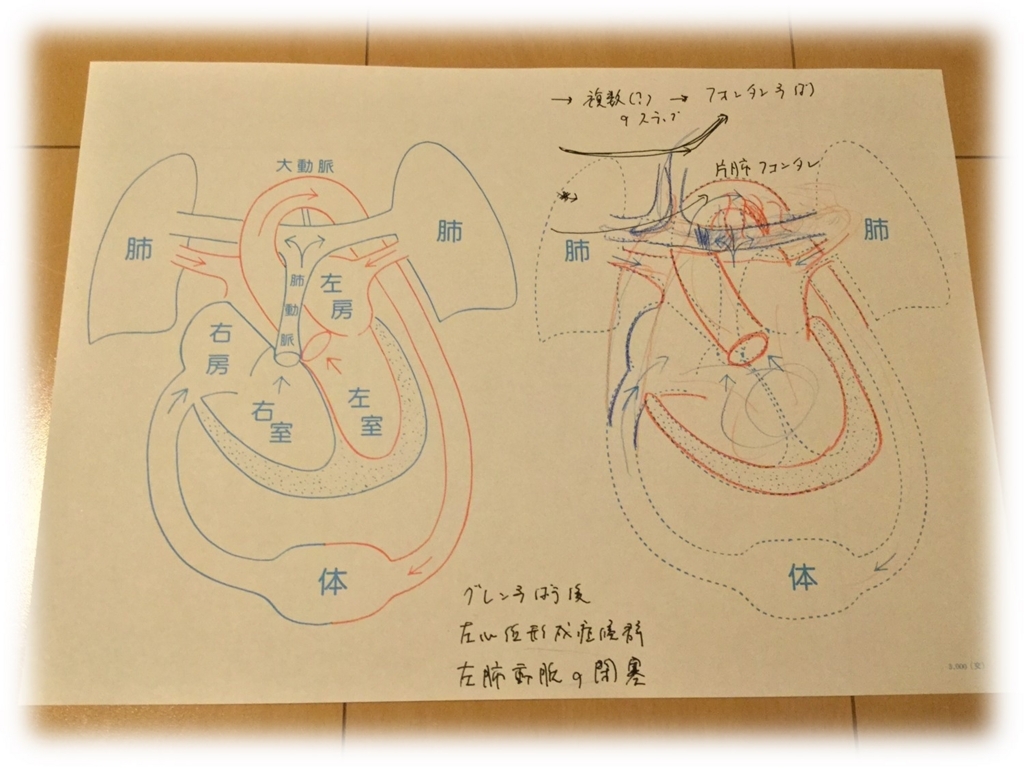 → 複数(?) → フォンタンうばり
のステップ
片肺フォンタン
大動脈
肺
肺
肺動脈
左房
右房
右室
左室
体
肺
肺
体
グレン手術後
左心低形成症候群
左肺動脈の閉塞